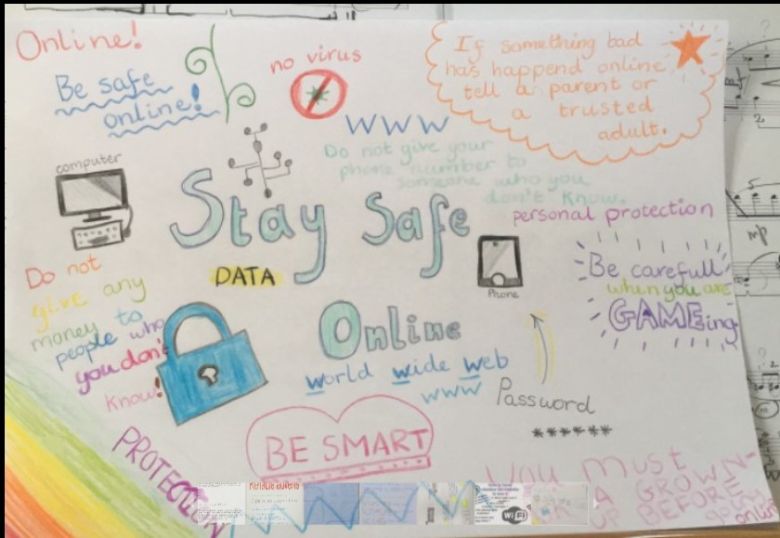 Online!
Be safe
online!
no virus
If something bad
has happend online
tell a parent or
a trusted
adult.
WWW
Do not give your
phone number to
someone who you
don't know.
computer
Stay Safe
personal protection
DATA
Phone
Be carefull
when you are
GAMEing
Do not
give any
money to
people who
you don't
know!
Online
world wide web
www
Password
******
BE SMART
PROTECTION
You must
A GROWN-
UP
WiFi